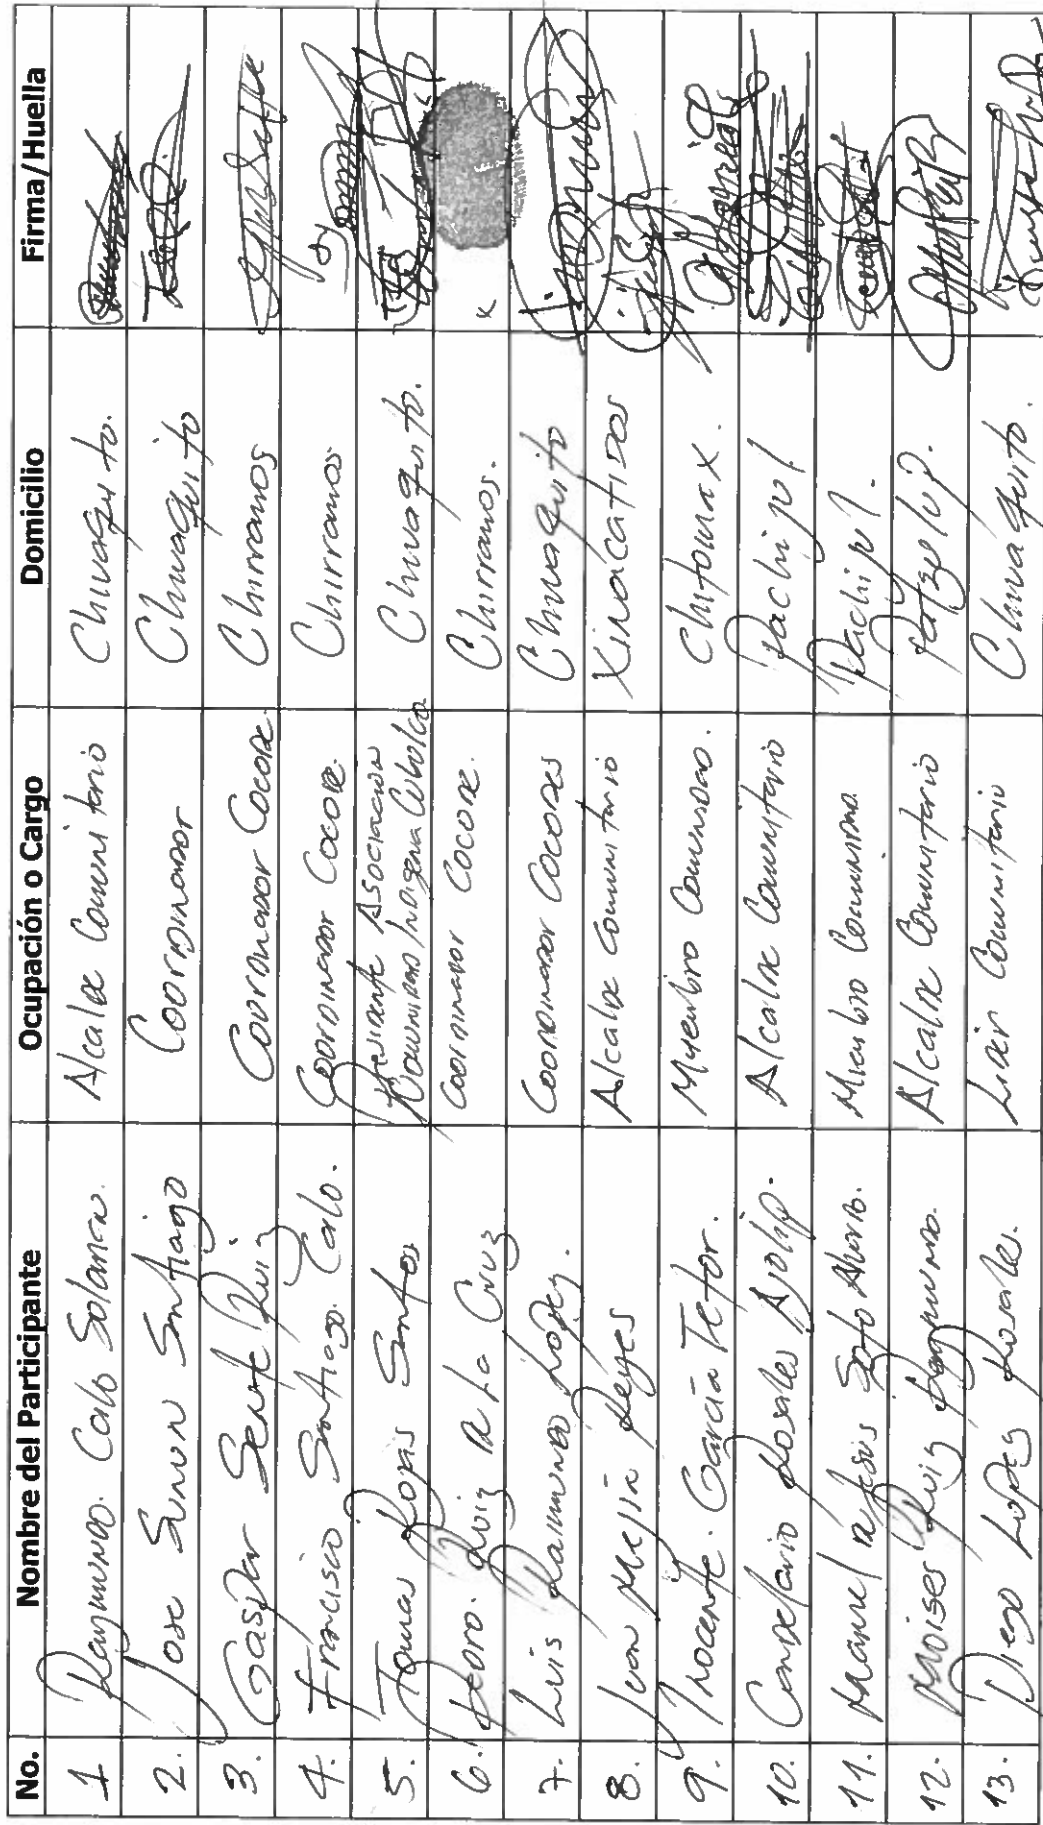 No. Nombre del Participante Ocupación o Cargo Domicilio Firma/Huella
1 Raymundo. Calo Solano. Alcalde Comunitario Chivaquito.
2. Jose Simon Santiago Coordinador Chivaquito
3. Gaspar Sente Ruiz Coordinador Cocode. Chirranos
4. Francisco Santiago. Calo. Coordinador Cocode. Chirranos
5. Tomas Rojas Santos Presidente Asociacion
Comunidad Indigena Chivaquito.
6. Pedro. Ruiz de La Cruz Coordinador Cocode. Chirranos. x
7. Luis Raimundo Lopez. Coordinador Cocodes Chivaquito
8. Juan Mejía Reyes Alcalde Comunitario Xinacatidos
9. Inocente. García Tetor. Myembro Comunidad. Chitomax.
10. Candelario Rosales Ajolip. Alcalde Comunitario Pachijul.
11. Manuel de Jesús Soto Miembro Comunidad. Pachijul.
12. Moises Ruiz Raymundo. Alcalde Comunitario Patzulup.
13. Diego Lopez Rosales. Lider Comunitario Chivaquito.